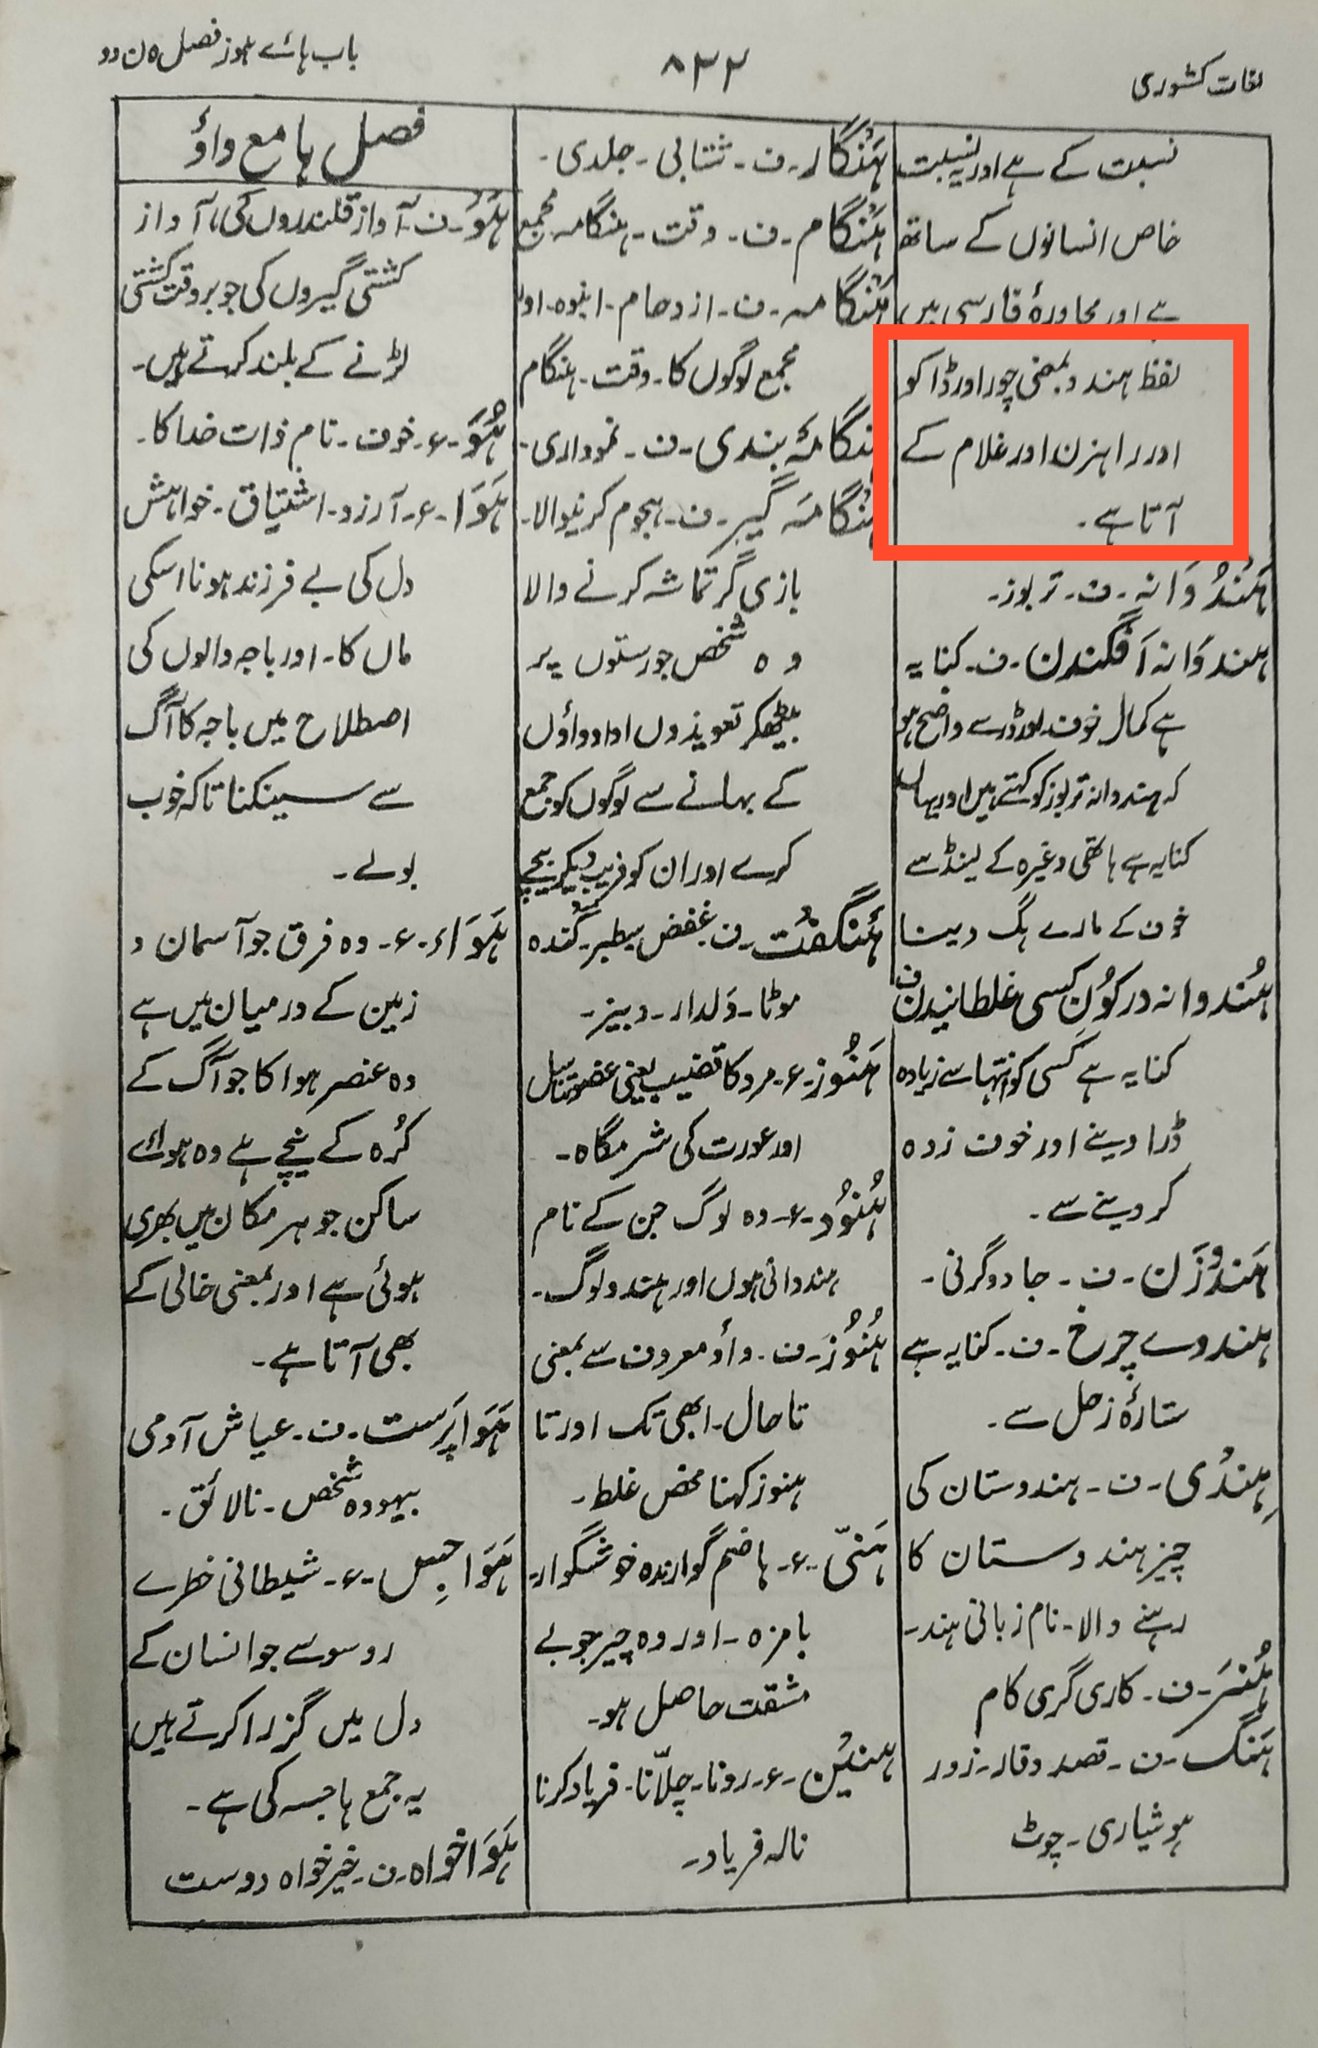 لغات کشوری
۸۲۲
باب ہائے ہوز فصل ہ ن دو
نسبت کے ہے اور یہ نسبت
خاص انسانوں کے ساتھ
ہے اور محاورۂ فارسی میں
لفظ ہندو بمعنی چور اور ڈاکو
اور راہزن اور غلام کے
آتا ہے۔
ہَنْدُوَانہ۔ف۔تربوز۔
ہندوَانہ اَفگندن۔ف۔کنایہ
ہے کمال خوف اور ڈر سے واضح ہو
کہ ہندوانہ تربوز کو کہتے ہیں اور یہاں
کنایہ ہے ہاتھی وغیرہ کے لینڈ سے
خوف کے مارے ہگ دینا
ہندوانہ در کُونِ کسی غلطانیدن ف
کنایہ ہے کسی کو انتہا سے زیادہ
ڈرا دینے اور خوف زدہ
کر دینے سے۔
ہَندُوزَن۔ف۔جادوگرنی۔
ہندوے چرخ۔ف۔کنایہ ہے
ستارۂ زحل سے۔
ہِندُی۔ف۔ہندوستان کی
چیز ہندوستان کا
رہنے والا۔نام زبانی ہند۔
ہُنَر۔ف۔کاری گری کام
ہَنگ۔ف۔قصد وقار۔زور
ہوشیاری۔چوٹ
ہَنگار۔ف۔شتابی۔جلدی۔
ہَنگام۔ف۔وقت۔ہنگامہ مجمع
ہَنگامہ۔ف۔ازدحام۔انبوہ اور
مجمع لوگوں کا۔وقت۔ہنگام
ہنگامۂ بندی۔ف۔نموداری۔
ہنگامَہ گیر۔ف۔ہجوم کرنیوالا۔
بازی گر تماشہ کرنے والا
وہ شخص جو رستوں پر
بیٹھکر تعویذوں اور دواؤں
کے بہانے سے لوگوں کو جمع
کرے اور ان کو فریب دیکر بیچے
ہَنگفت۔ف۔غفض سطبر۔گندہ
موٹا۔دَلدار۔دبیز۔
ہَنُوز۔ع۔مرد کا قضیب یعنی عضو تناسل
اور عورت کی شرمگاہ۔
ہُنُود۔ع۔وہ لوگ جن کے نام
ہندوانی ہوں اور ہندو لوگ۔
ہُنُوزَ۔ف۔واؤ معروف سے بمعنی
تاحال۔ابھی تک اور تا
ہنوز کہنا محض غلط۔
ہَنیّ۔ع۔ہاضم گوارندہ خوشگوار۔
بامزہ۔اور وہ چیز جو بے
مشقت حاصل ہو۔
ہنیْن۔ع۔رونا۔چلّانا۔فریاد کرنا
نالہ فریاد۔
فصل ہا مع واؤ
ہَوْ۔ف۔آواز قلندروں کی، آواز
کشتی گیروں کی جو بروقت کشتی
لڑنے کے بلند کرتے ہیں۔
ہُوَ۔ع۔خوف۔نام ذات خدا کا۔
ہَوَا۔ع۔آرزو۔اشتیاق۔خواہش
دل کی بے فرزند ہونا اسکی
ماں کا۔اور باجہ والوں کی
اصطلاح میں باجہ کا آگ
سے سینکنا تاکہ خوب
بولے۔
ہَوَاء۔ع۔وہ فرق جو آسمان و
زمین کے درمیان میں ہے
وہ عنصر ہوا کا جو آگ کے
کُرہ کے نیچے ہے وہ ہوائے
ساکن جو ہر مکان میں بھری
ہوئی ہے اور بمعنی خالی کے
بھی آتا ہے۔
ہَوَا پَرست۔ف۔عیاش آدمی
بیہودہ شخص۔نالائق۔
ہَوَاجِس۔ع۔شیطانی خطرے
روسوسے جو انسان کے
دل میں گزرا کرتے ہیں
یہ جمع ہاجسہ کی ہے۔
ہَوَاخواہ۔ف۔خیرخواہ دوست